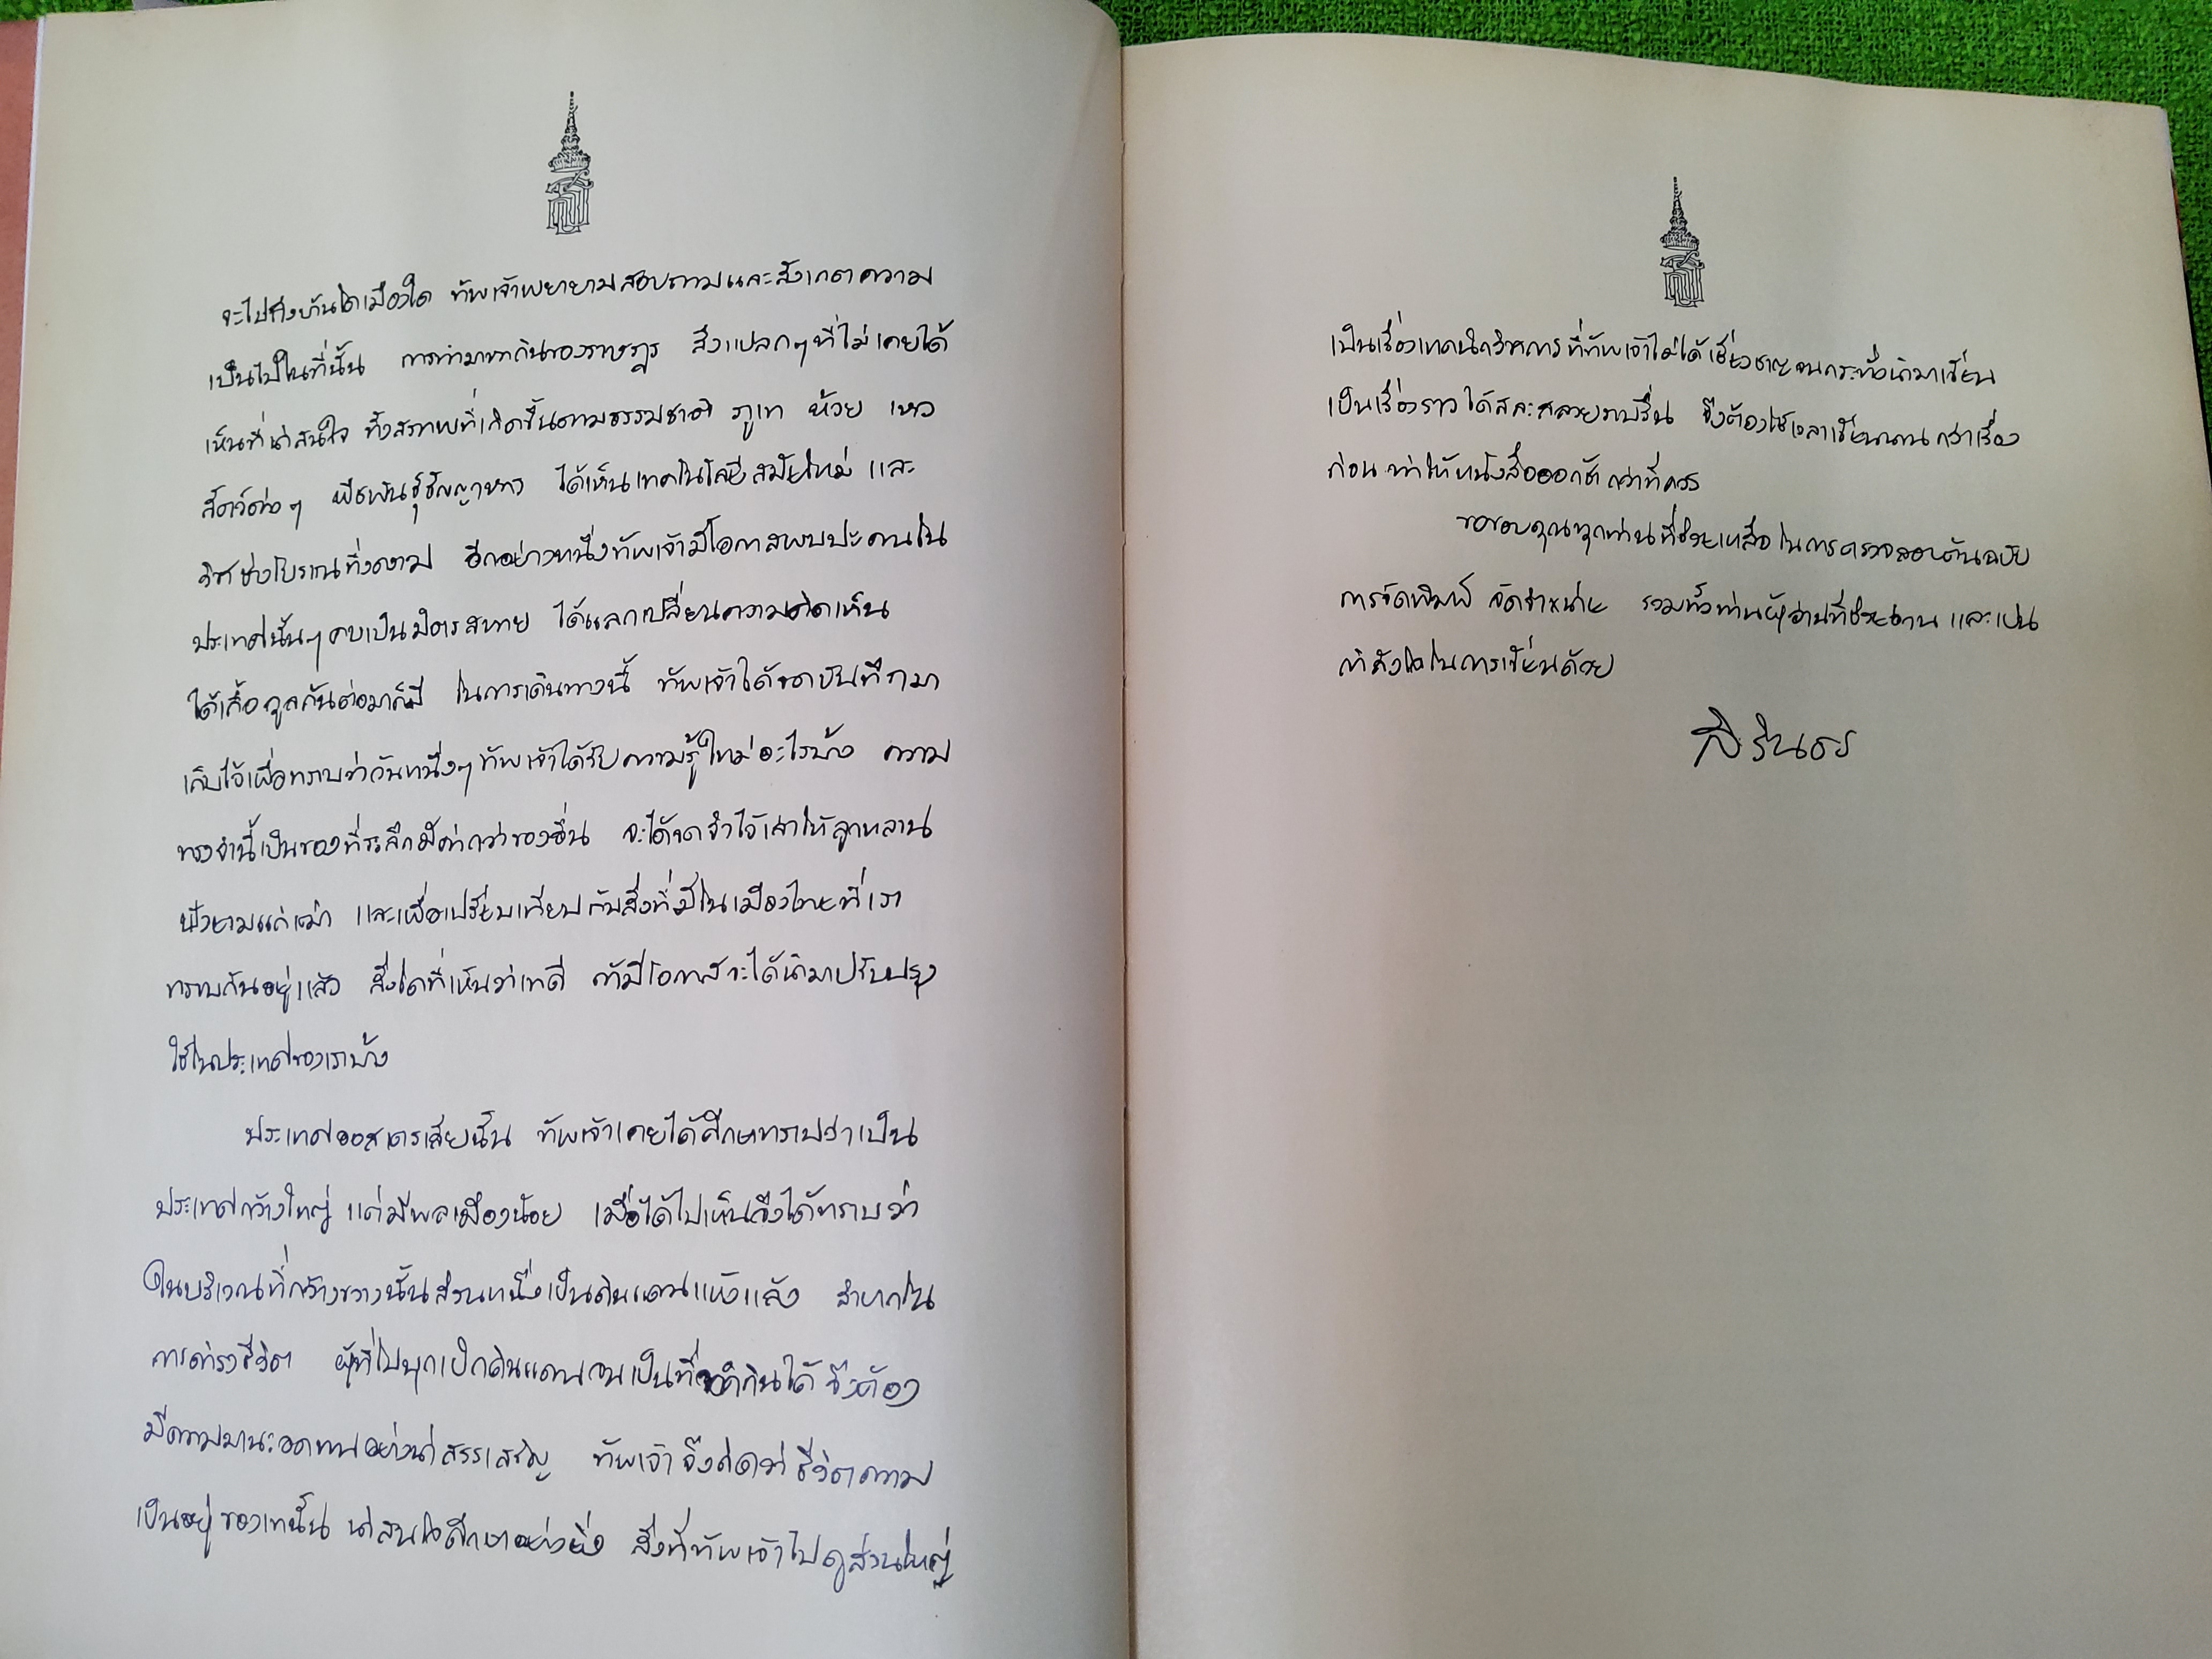 จะไปถึงบ้านใดเมืองใด ข้าพเจ้าพยายามสอบถามและสังเกตความ
เป็นไปในที่นั้น การทำมาหากินของราษฎร สิ่งแปลกๆ ที่ไม่เคยได้
เห็นที่น่าสนใจ ทั้งสภาพที่เกิดขึ้นตามธรรมชาติ ภูเขา ห้วย เหว
สัตว์ต่างๆ พืชพันธุ์ธัญญาหาร ได้เห็นเทคโนโลยีสมัยใหม่ และ
วิชาช่างโบราณที่งดงาม อีกอย่างหนึ่งข้าพเจ้ามีโอกาสพบปะคนใน
ประเทศนั้นๆ คบเป็นมิตรสหาย ได้แลกเปลี่ยนความคิดเห็น
ได้เกื้อกูลกันต่อมาก็มี ในการเดินทางนี้ ข้าพเจ้าได้จดบันทึกมา
เก็บไว้เพื่อทราบว่าวันหนึ่งๆ ข้าพเจ้าได้รับความรู้ใหม่อะไรบ้าง ความ
ทรงจำนี้เป็นของที่ระลึกมีค่ากว่าของอื่น จะได้จดจำไว้เล่าให้ลูกหลาน
ฟังยามแก่เฒ่า และเพื่อเปรียบเทียบกับสิ่งที่มีในเมืองไทยที่เรา
ทราบกันอยู่แล้ว สิ่งใดที่เห็นว่าเขาดี ถ้ามีโอกาสจะได้นำมาปรับปรุง
ใช้ในประเทศของเราบ้าง
ประเทศออสเตรเลียนั้น ข้าพเจ้าเคยได้ศึกษาทราบว่าเป็น
ประเทศกว้างใหญ่ แต่มีพลเมืองน้อย เมื่อได้ไปเห็นจึงได้ทราบว่า
ในบริเวณที่กว้างขวางนั้นส่วนหนึ่งเป็นดินแดนแห้งแล้ง ลำบากใน
การดำรงชีวิต ผู้ที่ไปบุกเบิกดินแดนจนเป็นที่ทำกินได้ จึงต้อง
มีความมานะอดทนอย่างน่าสรรเสริญ ข้าพเจ้าจึงคิดว่าชีวิตความ
เป็นอยู่ของเขานั้น น่าสนใจศึกษาอย่างยิ่ง สิ่งที่ข้าพเจ้าไปดูส่วนใหญ่
เป็นเรื่องเทคนิควิชาการ ที่ข้าพเจ้าไม่ได้เชี่ยวชาญจนกระทั่งนำมาเขียน
เป็นเรื่องราวได้สละสลวยราบรื่น จึงต้องใช้เวลาเขียนนานกว่าเรื่อง
ก่อน ทำให้หนังสือออกช้ากว่าที่ควร
ขอขอบคุณทุกท่านที่ช่วยเหลือในการตรวจสอบต้นฉบับ
การจัดพิมพ์ จัดจำหน่าย รวมทั้งท่านผู้อ่านที่ช่วยอ่าน และเป็น
กำลังใจในการเขียนด้วย
สิรินธร